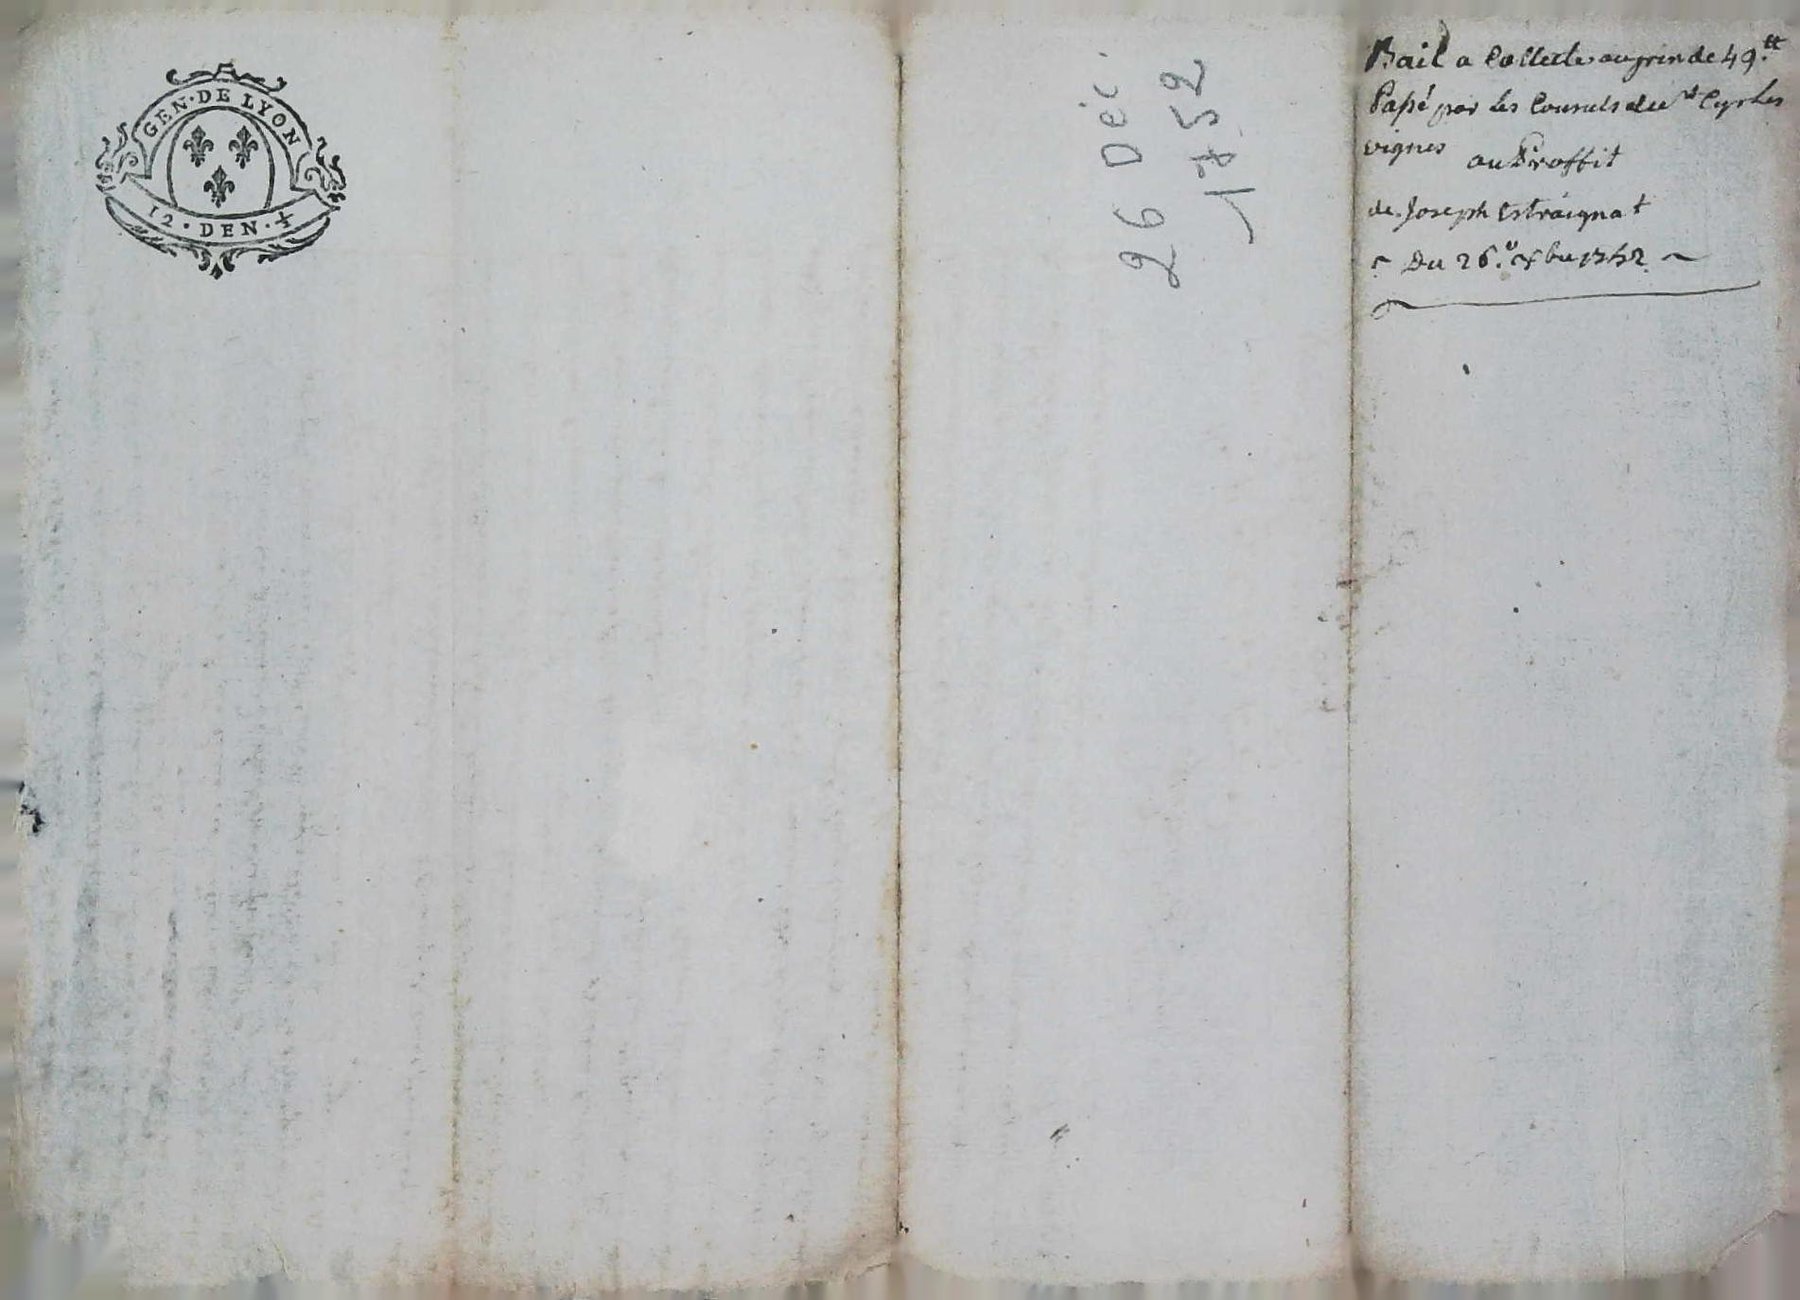 GEN · DE LYON
12 · DEN · ¼
26 Déc.
1752
Bail a Collecte au prix de 49.tt
Passé par les Consuls de Cyr les
vignes
au Proffit
de Joseph Estraignat
Du 26.e xbre 1752